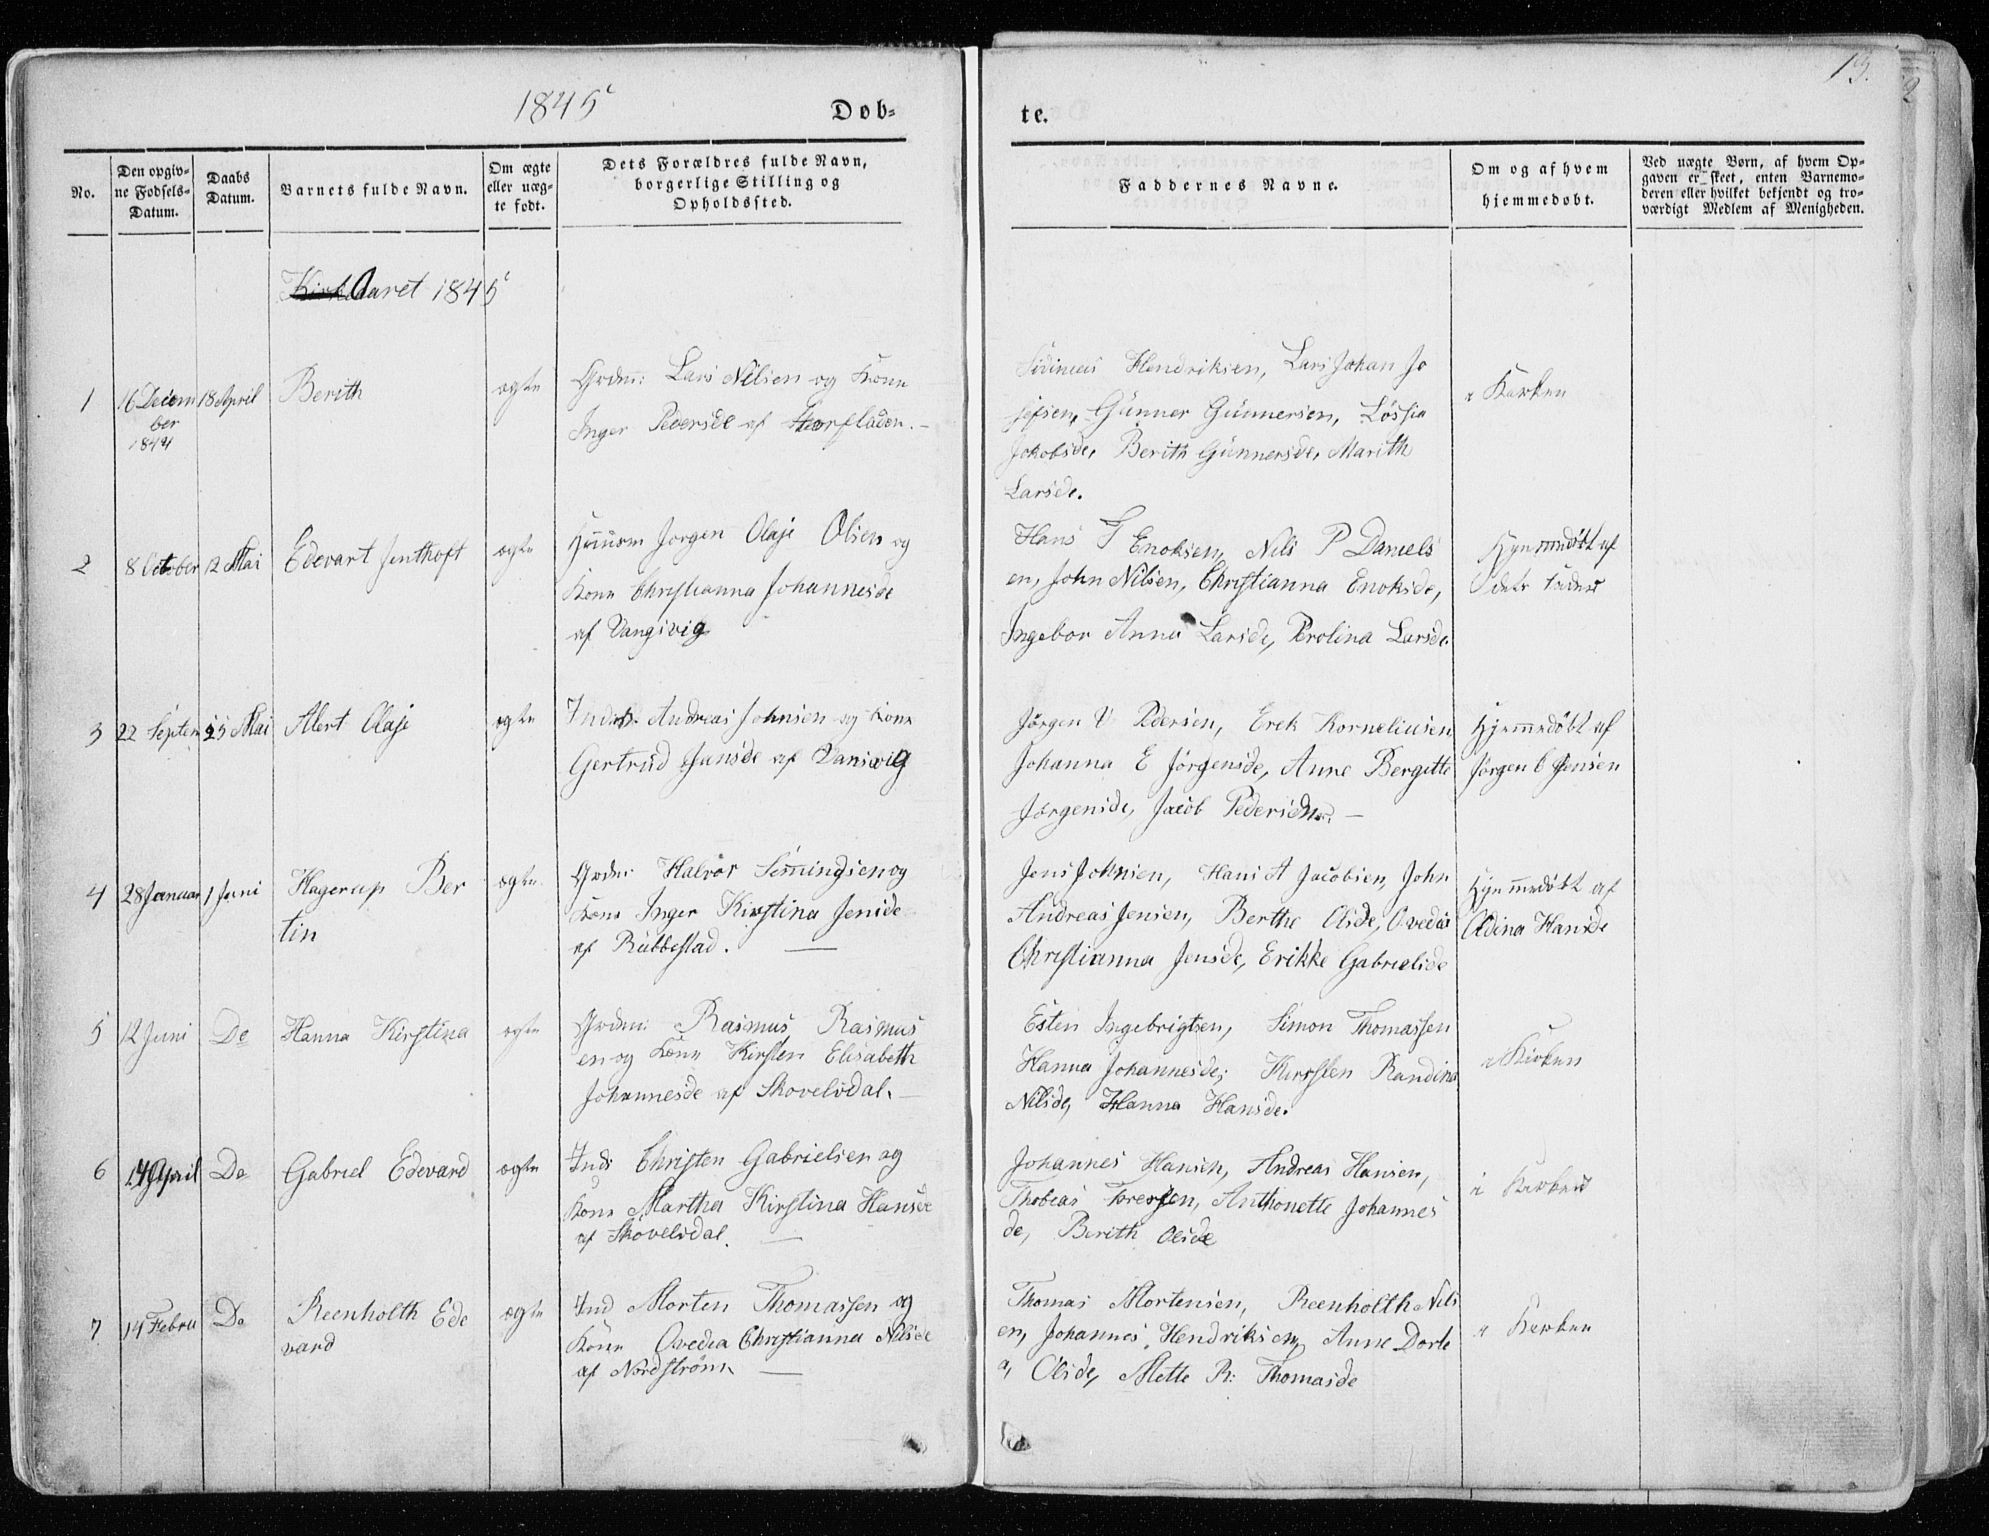 1845
Døb-
te.
13.
2
No.
Den opgiv-
ne Fødsels-
Datum.
Daabs
Datum.
Barnets fulde Navn.
Om ægte
eller uæg-
te født.
Dets Forældres fulde Navn,
borgerlige Stilling og
Opholdssted.
Faddernes Navne.
Om og af hvem
hjemmedøbt.
Ved uægte Børn, af hvem Op-
gaven er skeet, enten Barnemo-
deren eller hvilket bekjendt og tro-
værdigt Medlem af Menigheden.
Aaret 1845
1
16 Decem
ber
1844
18 April
Berith
ogte
Grdm: Lars Nilsen og Kone
Inger Pedersde af
Hendriksen, Lars Johan Jo
sefsen, Gunner Gunnersen,
Jokobsde, Berith Gunnersde, Marith
Larsde.
i Kirken
2
8 October
12 Mai
Edevart Jenthoft
ogte
Huusm Jorgen Olaje Olsen og
Kone Christianna Johannesde
af Vangsvig
Hans Enoksen, Nils P Daniels
en, John Nilsen, Christianna Enoksde,
Ingebor Anna Larsde, Perolina Larsde
Hjemmedøbt af
dets Fader
3
22 Septem
25 Mai
Alert Olaje
ogte
Andreas Johnsen og Kone
Gertrud Hansde af Vansvig
Jørgen V Pedersen, Erek Korneliusen
Johanna E Jørgensde, Anne Bergitte
Jørgensde, Jacob Pedersen. —
Hjemmedøbt af
Jørgen C Jensen
4
28 Januar
1 Juni
Hagerup Ber
tin
ogte
Grdm: Halvor Simingsen og
Kone Inger Kirstina Jensde
af Rubbestad. —
Jens Johnsen, Hans A Jacobsen, John
Andreas Jensen, Berthe Olsde, Ovedia
Christianna Jensde, Erikke Gabrielsde
Hjemmedøbt af
Oldina Hansde
5
12 Juni
Do
Hanna Kirstina
ogte
Grdm: Rasmus Rasmus
en og Kone Kirsten Elisabeth
Johannesde af Skovelvdal. —
Esten Ingebrigtsen, Simon Thomassen
Hanna Johannesde, Kirsten Randina
Nilsde, Hanna Hansde.
i Kirken
6
14 April
Do
Gabriel Edevard
ogte
Ind: Christen Gabrielsen og
Kone Martha Kirstina Hansde
af Skovelvdal. —
Johannes Hansen, Andreas Hansen,
Thobias Toressen, Anthonette Johannes
de, Berith Olsde
i Kirken
7
14 Febru
Do
Reenholth Ede
vard
ogte
Ind Morten Thomassen og
Kone Ovedia Christianna Nilsde
af Nordstrøm —
Thomas Mortensen, Reenholth Nils
en, Johannes Hendriksen, Anne Dorte
a, Olsde, Mette R: Thomasde
i Kirken